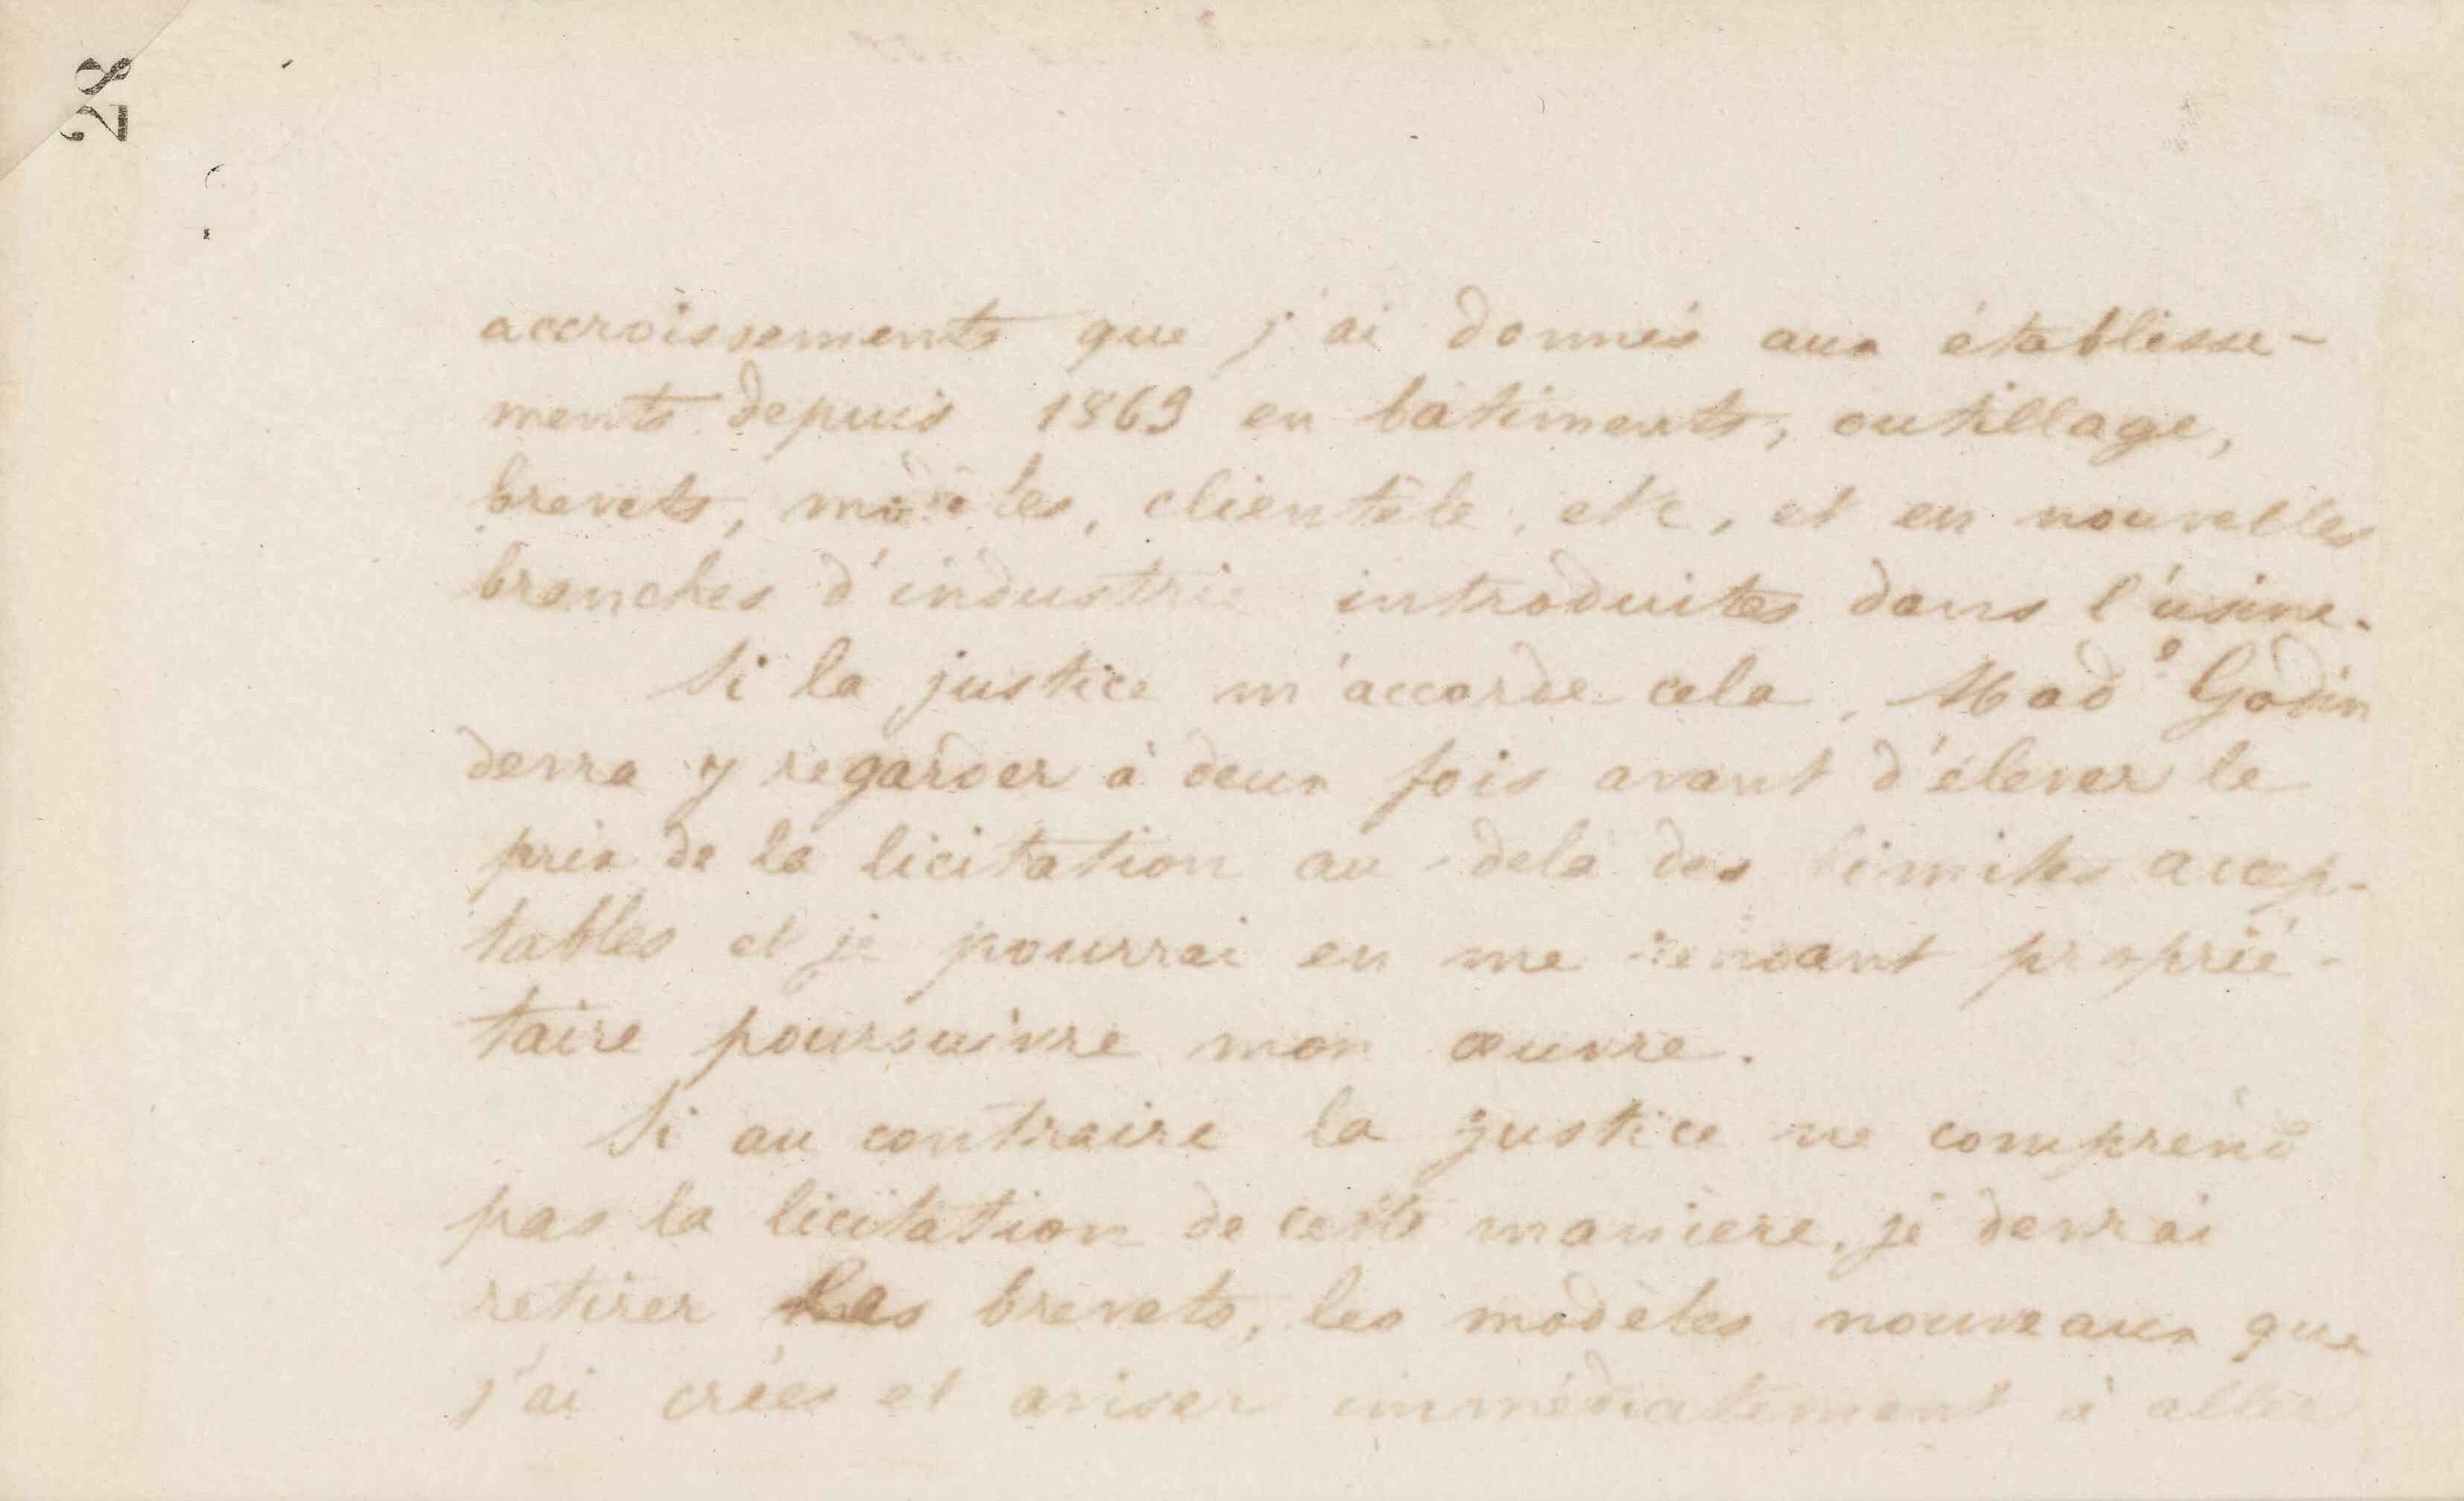 28
accroissements que j'ai donnés aux établisse-
ments depuis 1863 en bâtiments, outillage,
brevets, modèles, clientèle, etc, et en nouvelles
branches d'industrie introduites dans l'usine.
Si la justice m'accorde cela, Mad^e Godin
devra y regarder à deux fois avant d'élever le
prix de la licitation au-delà des limites accep-
tables et je pourrai en me rendant proprié-
taire poursuivre mon œuvre.
Si au contraire la justice ne comprend
pas la licitation de cette manière, je devrai
retirer les brevets, les modèles nouveaux que
j'ai créés et aviser immédiatement à aller